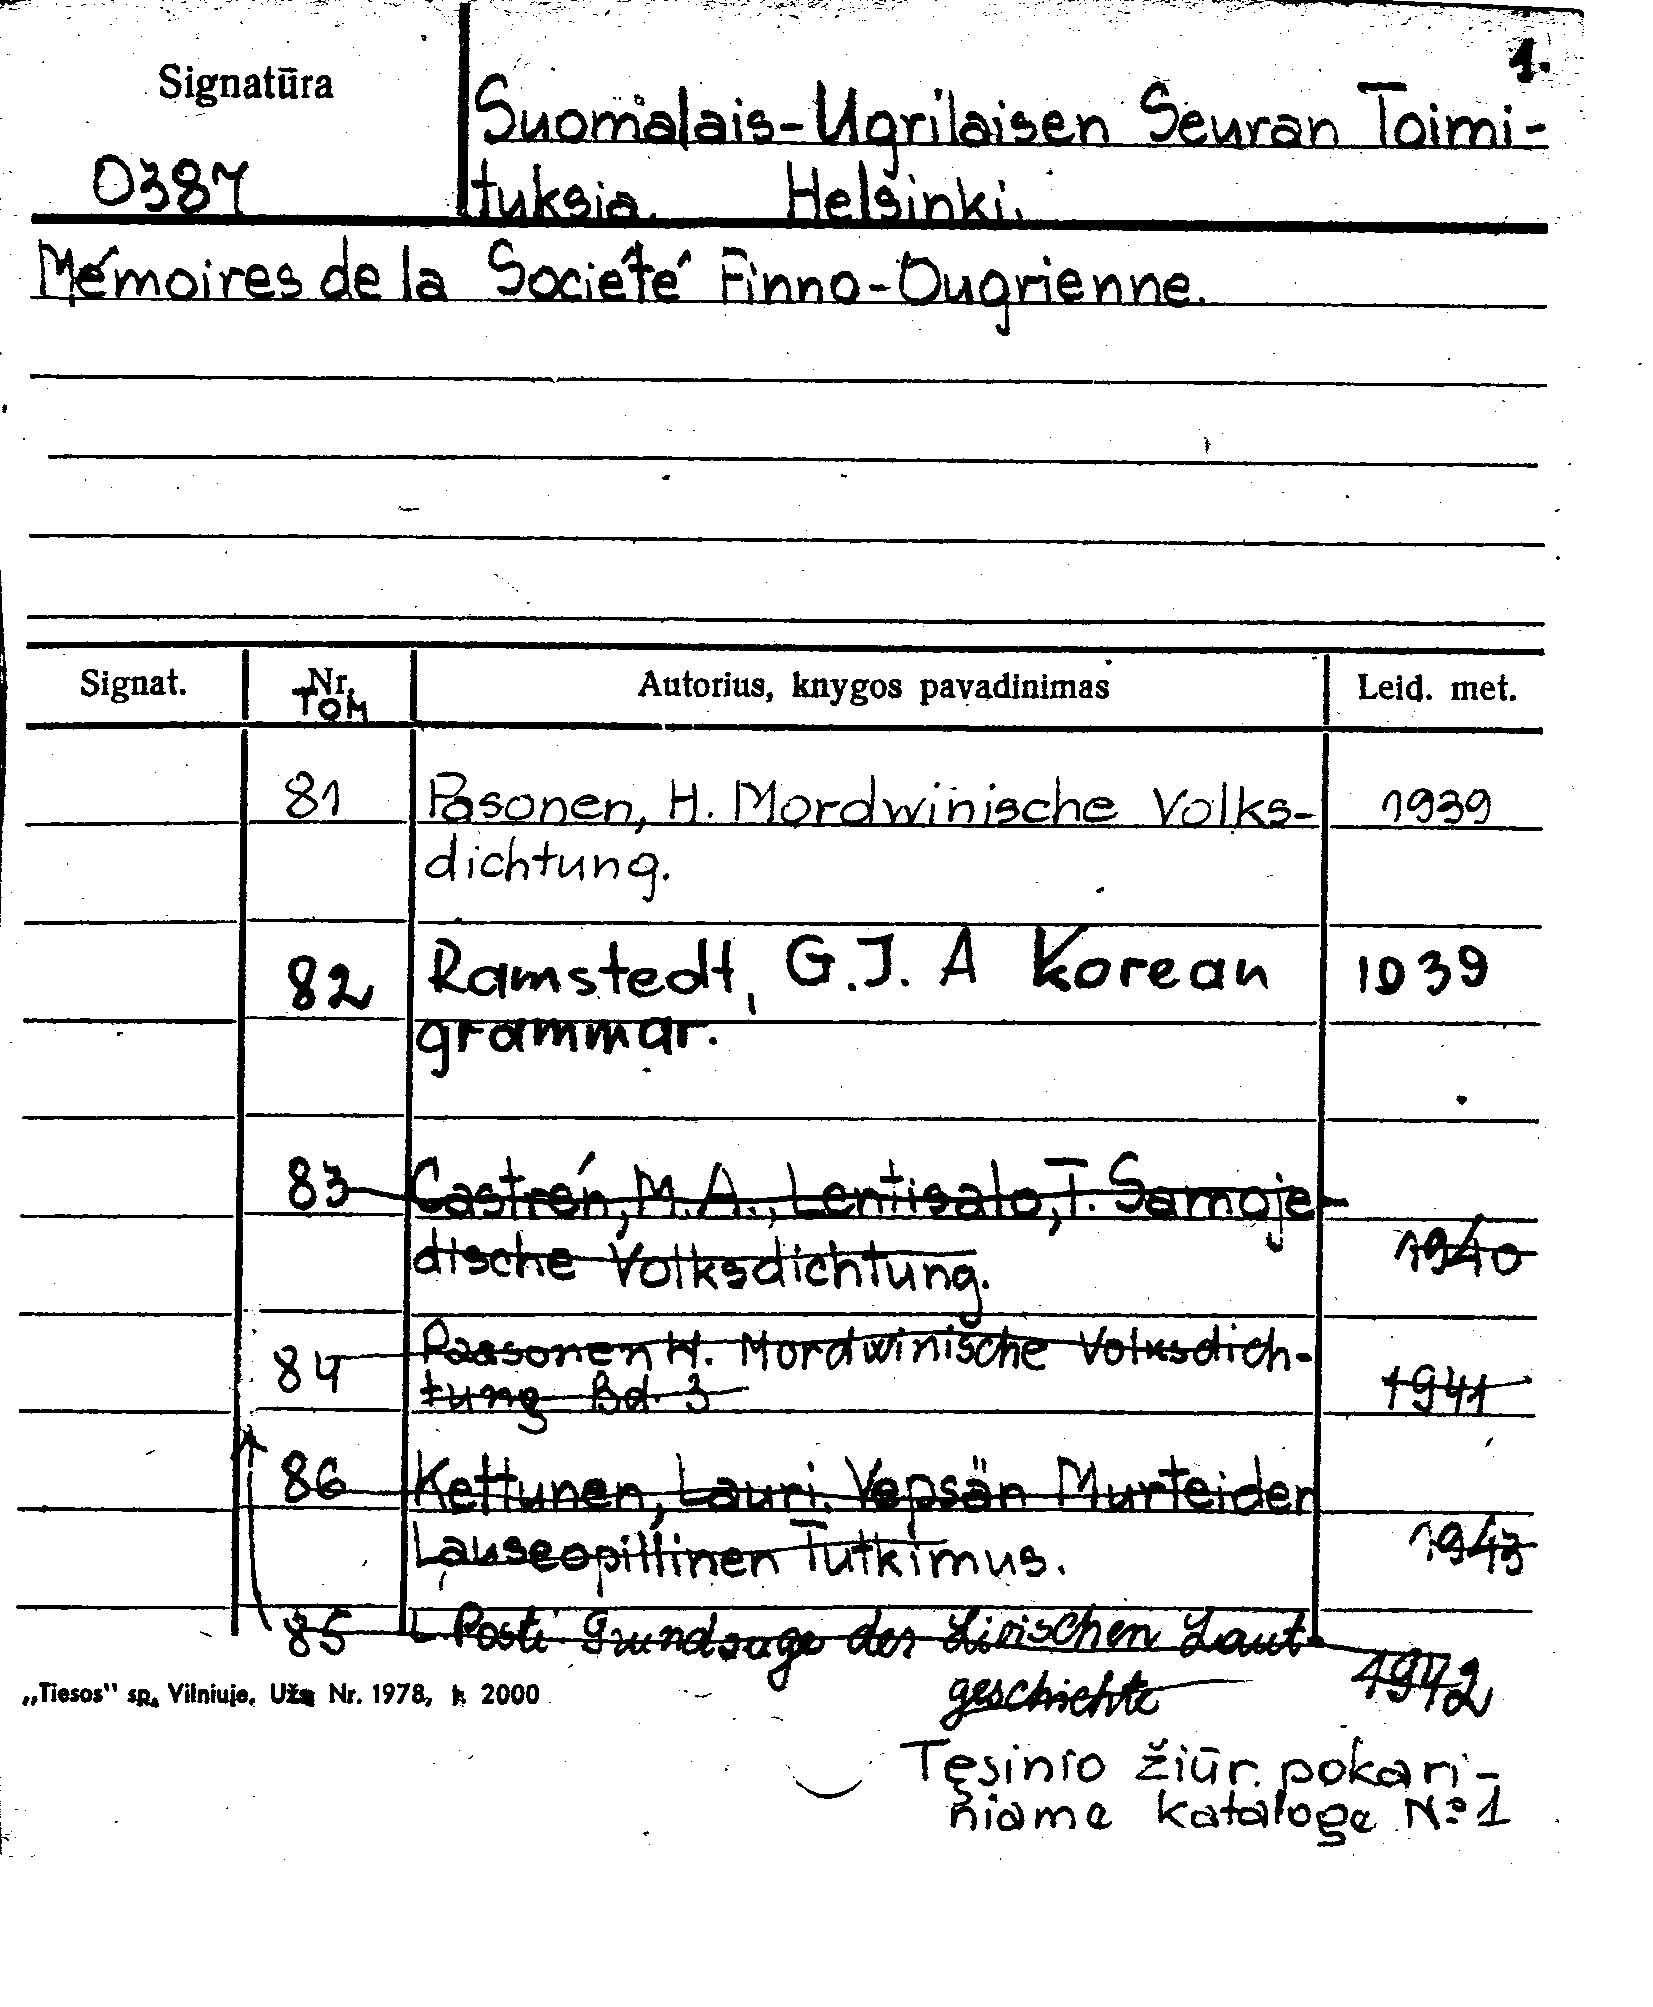 1.
Signatūra
Suomalais-Ugrilaisen Seuran Toimi-
0387
tuksia. Helsinki.
Mémoires de la Société Finno-Ougrienne.
Signat. Nr. Autorius, knygos pavadinimas Leid. met.
TOM
81 Pasonen, H. Mordwinische Volks- 1939
dichtung.
82 Ramstedt, G.J. A Korean 1939
grammar.
83 Castrén, M.A., Lentisalo, T. Samoje-
dische Volksdichtung. 1940
84 Paasonen H. Mordwinische Volksdich-
tung Bd. 3 1941
86 Kettunen, Lauri. Vepsän Murteiden
Lauseopillinen Tutkimus. 1943
85 L. Posti Grundzuge der Livischen Laut
geschichte 1942
„Tiesos" sp. Vilniuje. Užs. Nr. 1978, t. 2000
Tęsinio žiūr. pokari-
niame kataloge № 1